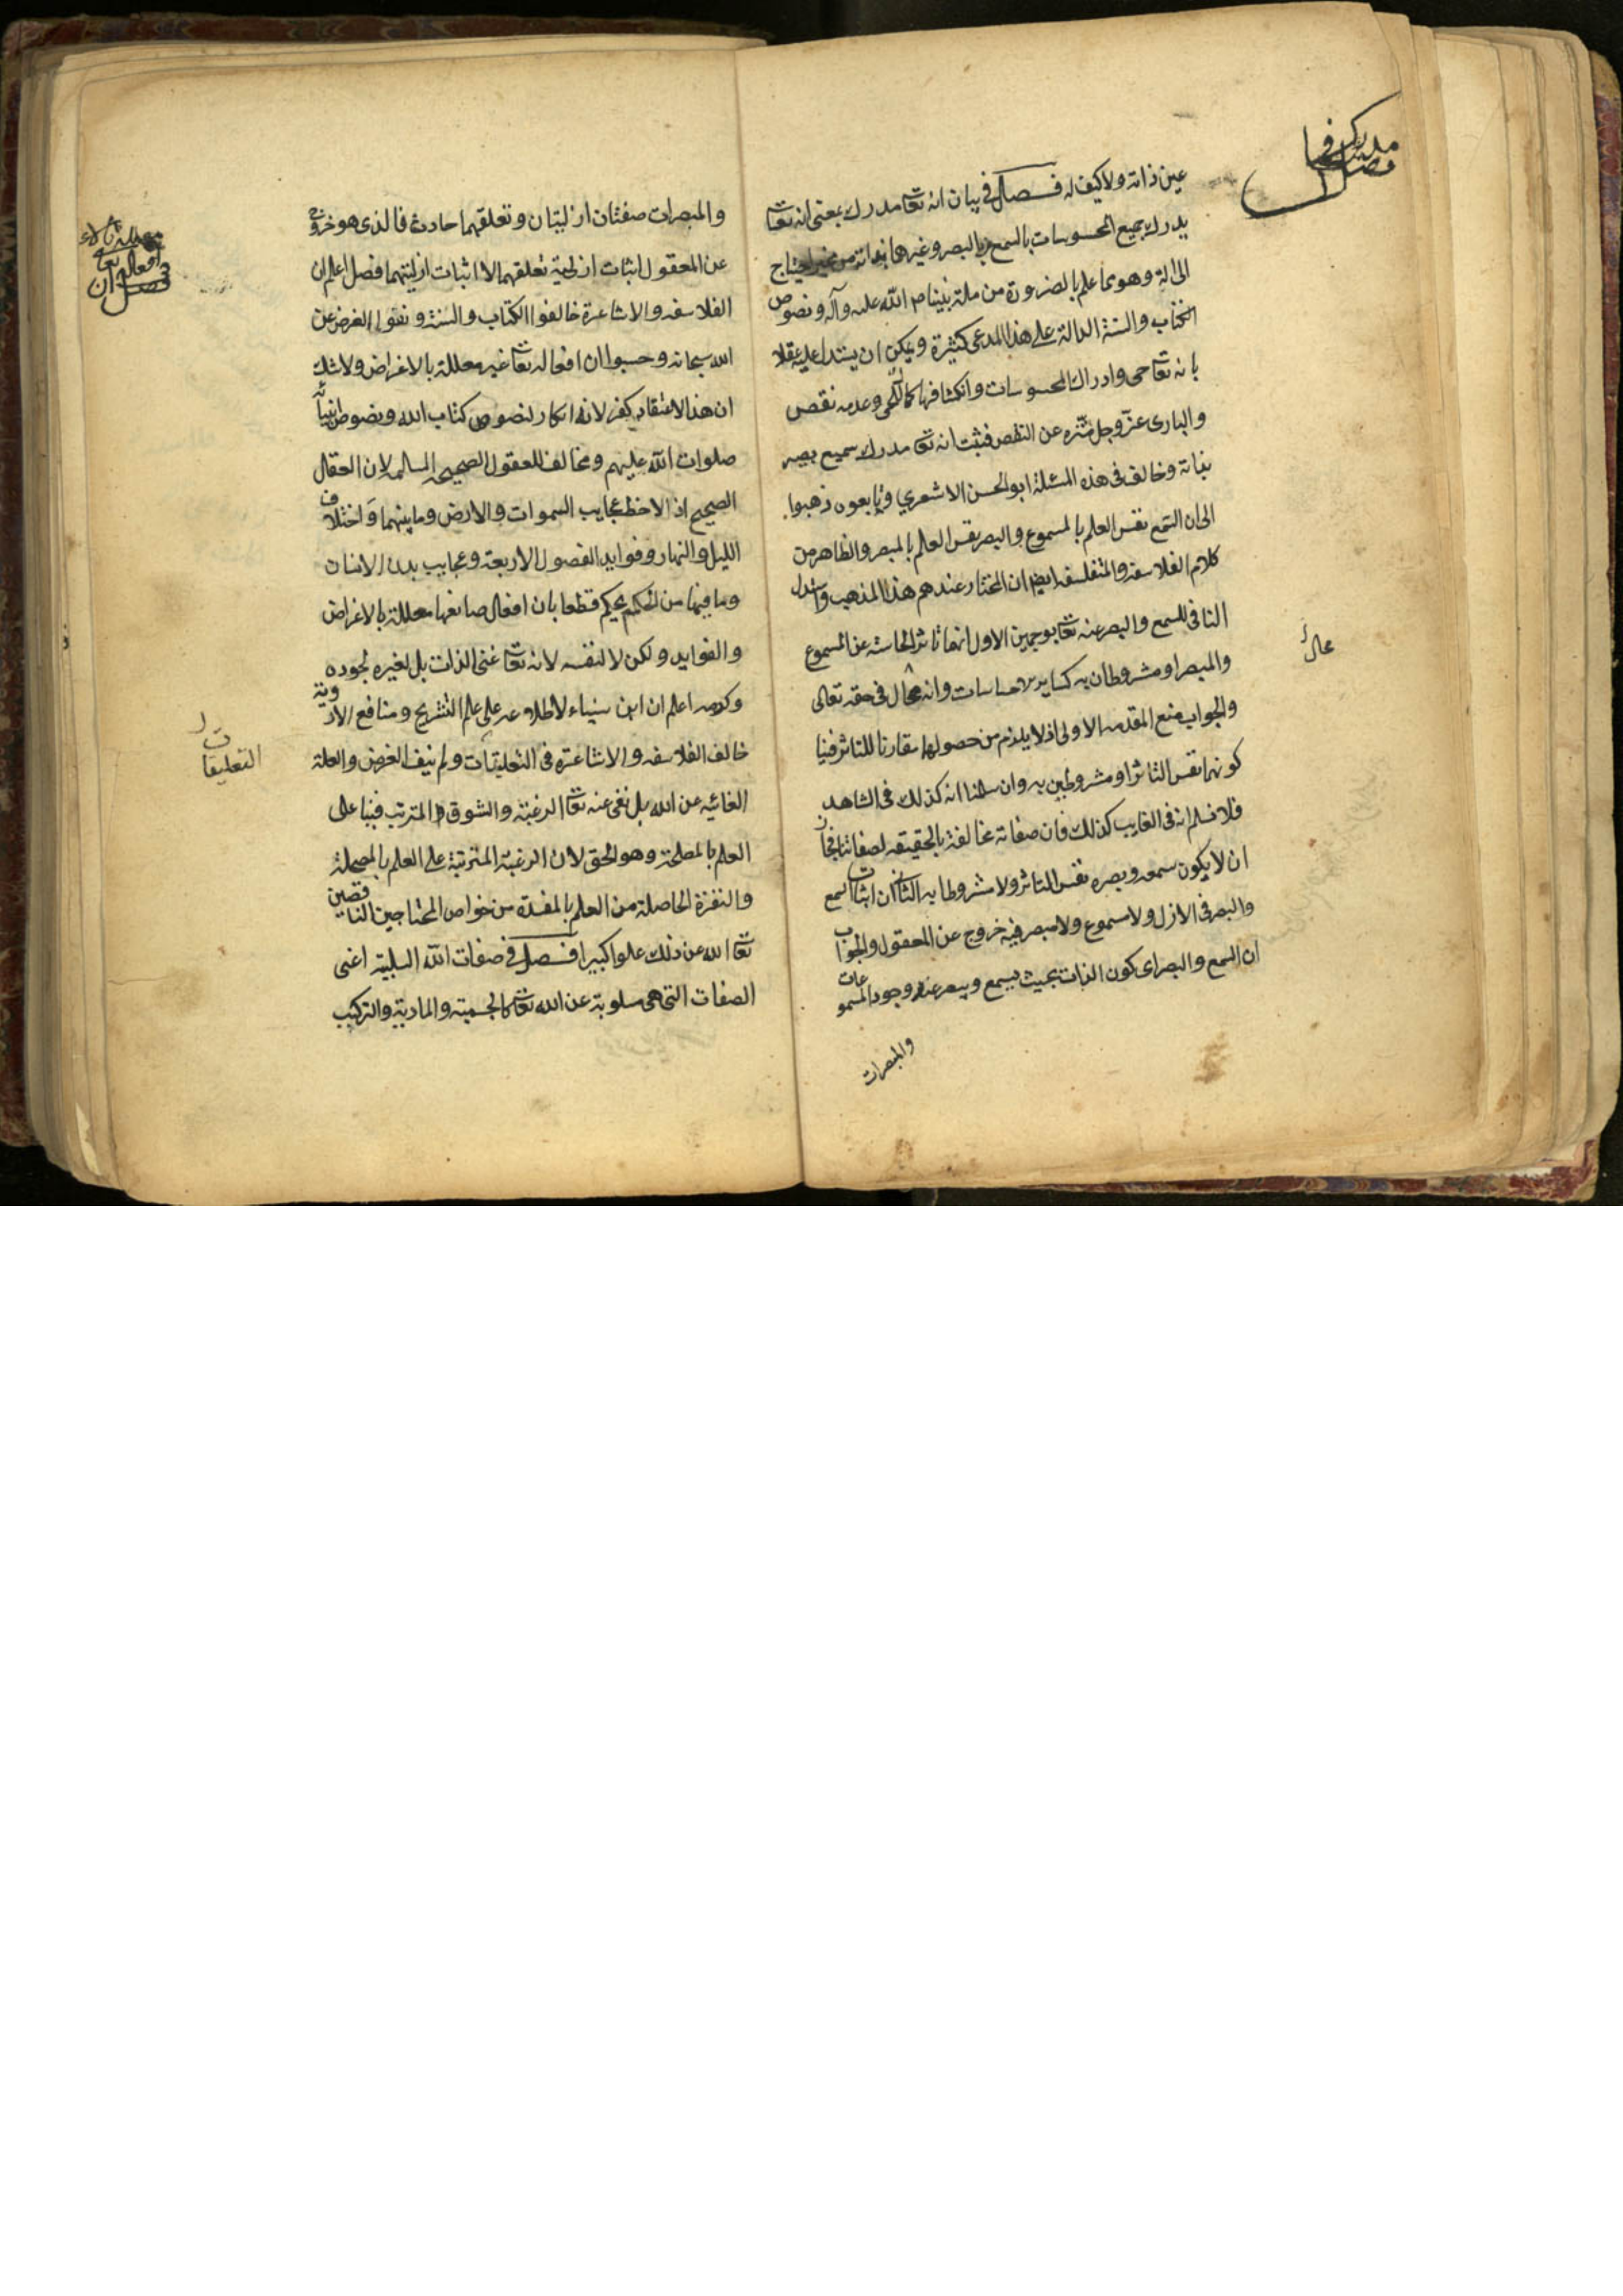 عين ذاته ولا كيف له فصل فى بيان انه تعا مدرك بمعنى انه تعا
يدرك جميع المحسوسات بالسمع والبصر وغيرها بذاته من غير احتياج
الى الة وهو مما علم بالضرورة من ملة نبينا صم الله عليه وآله ونصوص
الكتاب والسنة الدالة على هذا المدعى كثيرة ويمكن ان يستدل عليه عقلا
بانه تعا حى وادراك المحسوسات وانكشافها كمال للحى وعدمه نقص
والبارى عز وجل منزه عن النقص فثبت انه تعا مدرك سميع بصير
بذاته وخالف فى هذه المسئلة ابو الحسن الاشعري وتابعوه ذهبوا
الى ان السمع نفس العلم بالمسموع والبصر نفس العلم بالمبصر والظاهر من
كلام الفلاسفه والمتفلسفه ايضا ان المختار عندهم هذا المذهب واستدل
النافى للسمع والبصر عنه تعا بوجهين الاول انهما تاثر الحاسة عن المسموع
والمبصر او مشروطان به كساير الاحساسات وانه محال فى حقه تعالى
والجواب منع المقدمه الاولى اذ لا يلزم من حصولها مقارنا للتاثر فينا
كونهما نفس التاثر او مشروطين به وان سلمنا انه كذلك فى الشاهد
فلا نسلم انه فى الغايب كذلك فان صفاته مخالفة بالحقيقه لصفاتنا فجاز
ان لا يكون سمعه وبصره نفس التاثر ولا مشروطا به الثانى ان اثبات السمع
والبصر فى الازل ولا مسموع ولا مبصر فيه خروج عن المعقول والجواب
ان السمع والبصر اى كون الذات بحيث يسمع ويبصر عند وجود المسموعات
والمبصرات
فصل فى
مدرك
محال
والمبصرات صفتان ازليتان وتعلقهما حادث فالذى هو خروج
عن المعقول اثبات ازلية تعلقهما لا اثبات ازليتهما فصل اعلم ان
الفلاسفه والاشاعرة خالفوا الكتاب والسنة ونفوا الغرض عن
الله سبحانه وحسبوا ان افعاله تعا غير معللة بالاغراض ولا شك
ان هذا الاعتقاد كفر لانه انكار لنصوص كتاب الله ونصوص انبيائه
صلوات الله عليهم ومخالف للعقول الصحيحه السالمه لان العقل
الصحيح اذا لاحظ عجايب السموات والارض وما بينهما واختلاف
الليل والنهار وفوايد الفصول الاربعة وعجايب بدن الانسان
وما فيها من الحكم يحكم قطعا بان افعال صانعها معللة بالاغراض
والفوايد ولكن لا لنفسه لانه تعا غنى الذات بل لغيره لجوده
وكرمه اعلم ان ابن سيناء لاطلاعه على علم التشريح ومنافع الادوية
خالف الفلاسفه والاشاعره فى التعليقات ولم ينف الغرض والعلة
الغائيه عن الله بل نفى عنه تعا الرغبة والشوق المترتب فينا على
العلم بالمصلحة وهو الحق لان الرغبة المترتبة على العلم بالمصلحة
والنفرة الحاصلة من العلم بالمفسدة من خواص المحتاجين الناقصين
تعا الله عن ذلك علوا كبيرا فصل فى صفات الله السلبية اعنى
الصفات التى هى مسلوبة عن الله تعا كالجسمية والمادية والتركيب
فصل ان
افعاله تعا
التعليقات